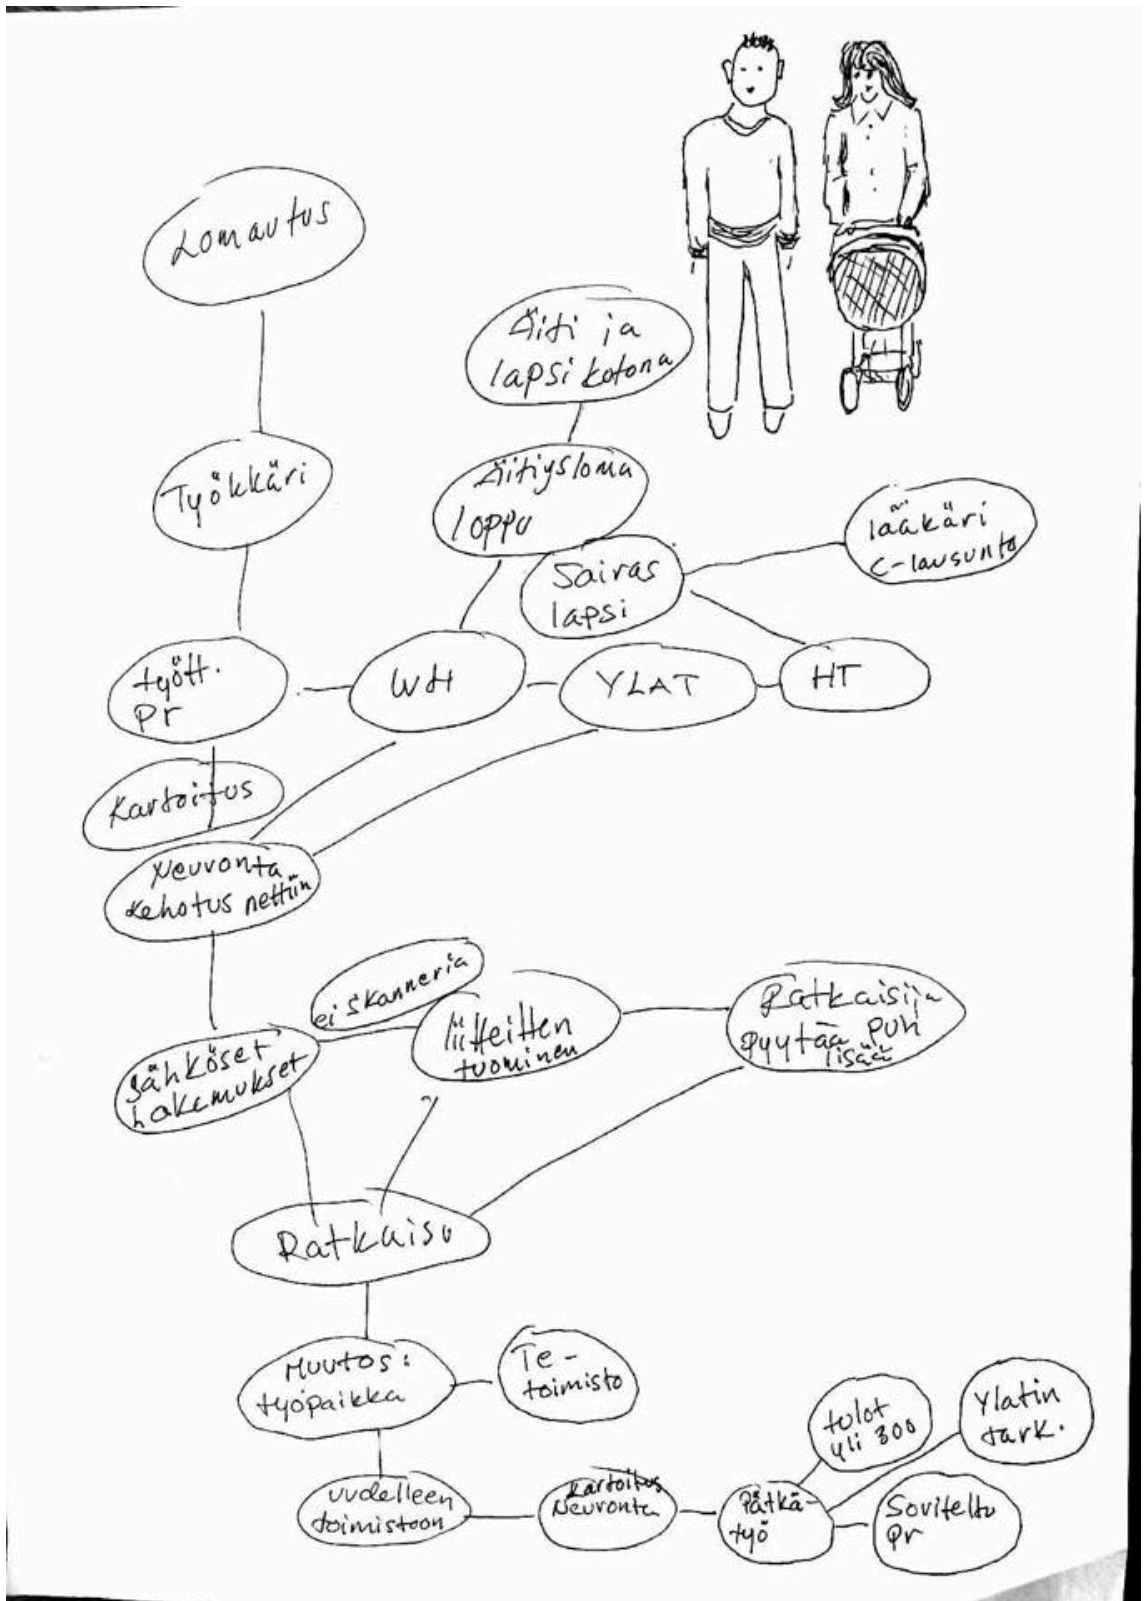 Lomautus
Äiti ja
lapsi kotona
Työkkäri
Äitiysloma
loppu
lääkäri
C-lausunto
Sairas
lapsi
tyött.
pr
YLAT
HT
Kartoitus
Neuvonta
kehotus nettiin
ei skanneria
sähköset
hakemukset
liitteitten
tuominen
Ratkaisija
pyytää puh
lisää
Ratkaisu
Muutos:
työpaikka
Te-
toimisto
tulot
yli 300
Ylatin
tark.
uudelleen
toimistoon
Kartoitus
Neuvonta
Pätkä-
työ
Soviteltu
pr